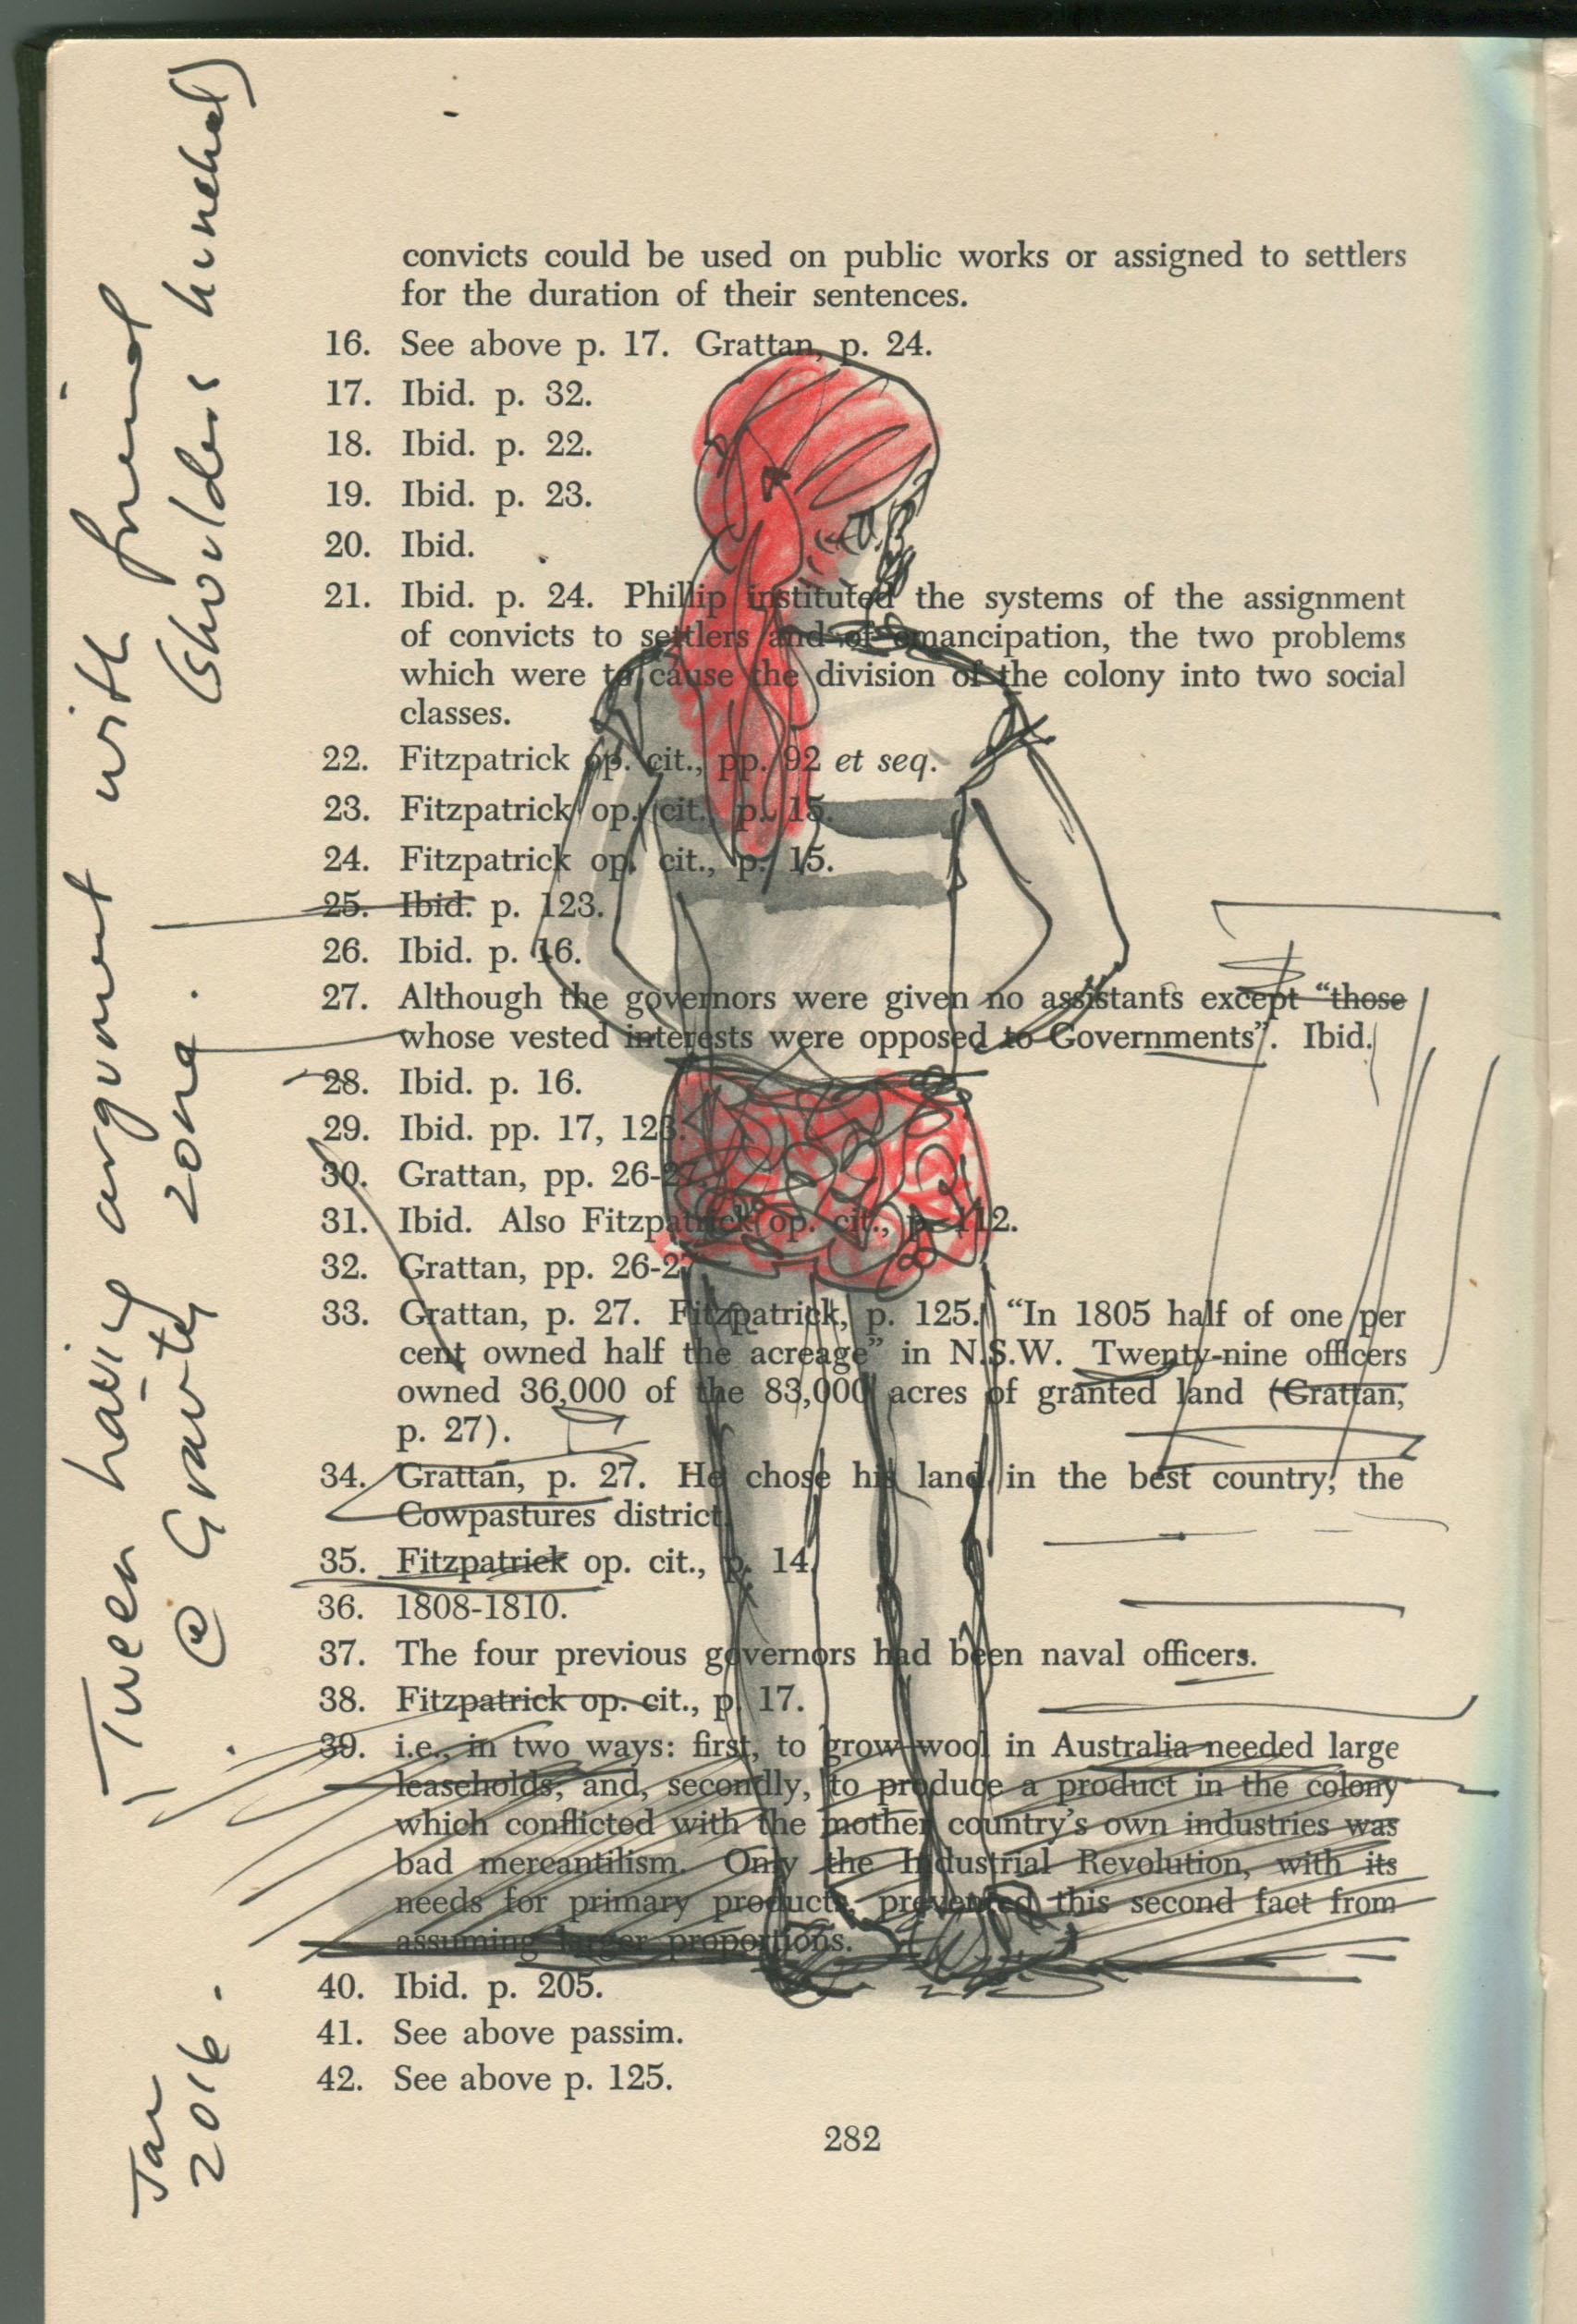 convicts could be used on public works or assigned to settlers
for the duration of their sentences.
16. See above p. 17. Grattan, p. 24.
17. Ibid. p. 32.
18. Ibid. p. 22.
19. Ibid. p. 23.
20. Ibid.
21. Ibid. p. 24. Phillip instituted the systems of the assignment
of convicts to settlers and of emancipation, the two problems
which were to cause the division of the colony into two social
classes.
22. Fitzpatrick op. cit., pp. 92 et seq.
23. Fitzpatrick op. cit., p. 15.
24. Fitzpatrick op. cit., p. 15.
25. Ibid. p. 123.
26. Ibid. p. 16.
27. Although the governors were given no assistants except “those
whose vested interests were opposed to Governments”. Ibid.
28. Ibid. p. 16.
29. Ibid. pp. 17, 123.
30. Grattan, pp. 26-27.
31. Ibid. Also Fitzpatrick op. cit., p. 112.
32. Grattan, pp. 26-27
33. Grattan, p. 27. Fitzpatrick, p. 125. “In 1805 half of one per
cent owned half the acreage” in N.S.W. Twenty-nine officers
owned 36,000 of the 83,000 acres of granted land (Grattan,
p. 27).
34. Grattan, p. 27. He chose his land in the best country, the
Cowpastures district.
35. Fitzpatrick op. cit., p. 14.
36. 1808-1810.
37. The four previous governors had been naval officers.
38. Fitzpatrick op. cit., p. 17.
39. i.e., in two ways: first, to grow wool in Australia needed large
leaseholds, and, secondly, to produce a product in the colony
which conflicted with the mother country’s own industries was
bad mercantilism. Only the Industrial Revolution, with its
needs for primary products, prevented this second fact from
assuming larger proportions.
40. Ibid. p. 205.
41. See above passim.
42. See above p. 125.
282
Tween having argument with friend
@ Gravity zone. (shoulders hunched)
Jan
2016.